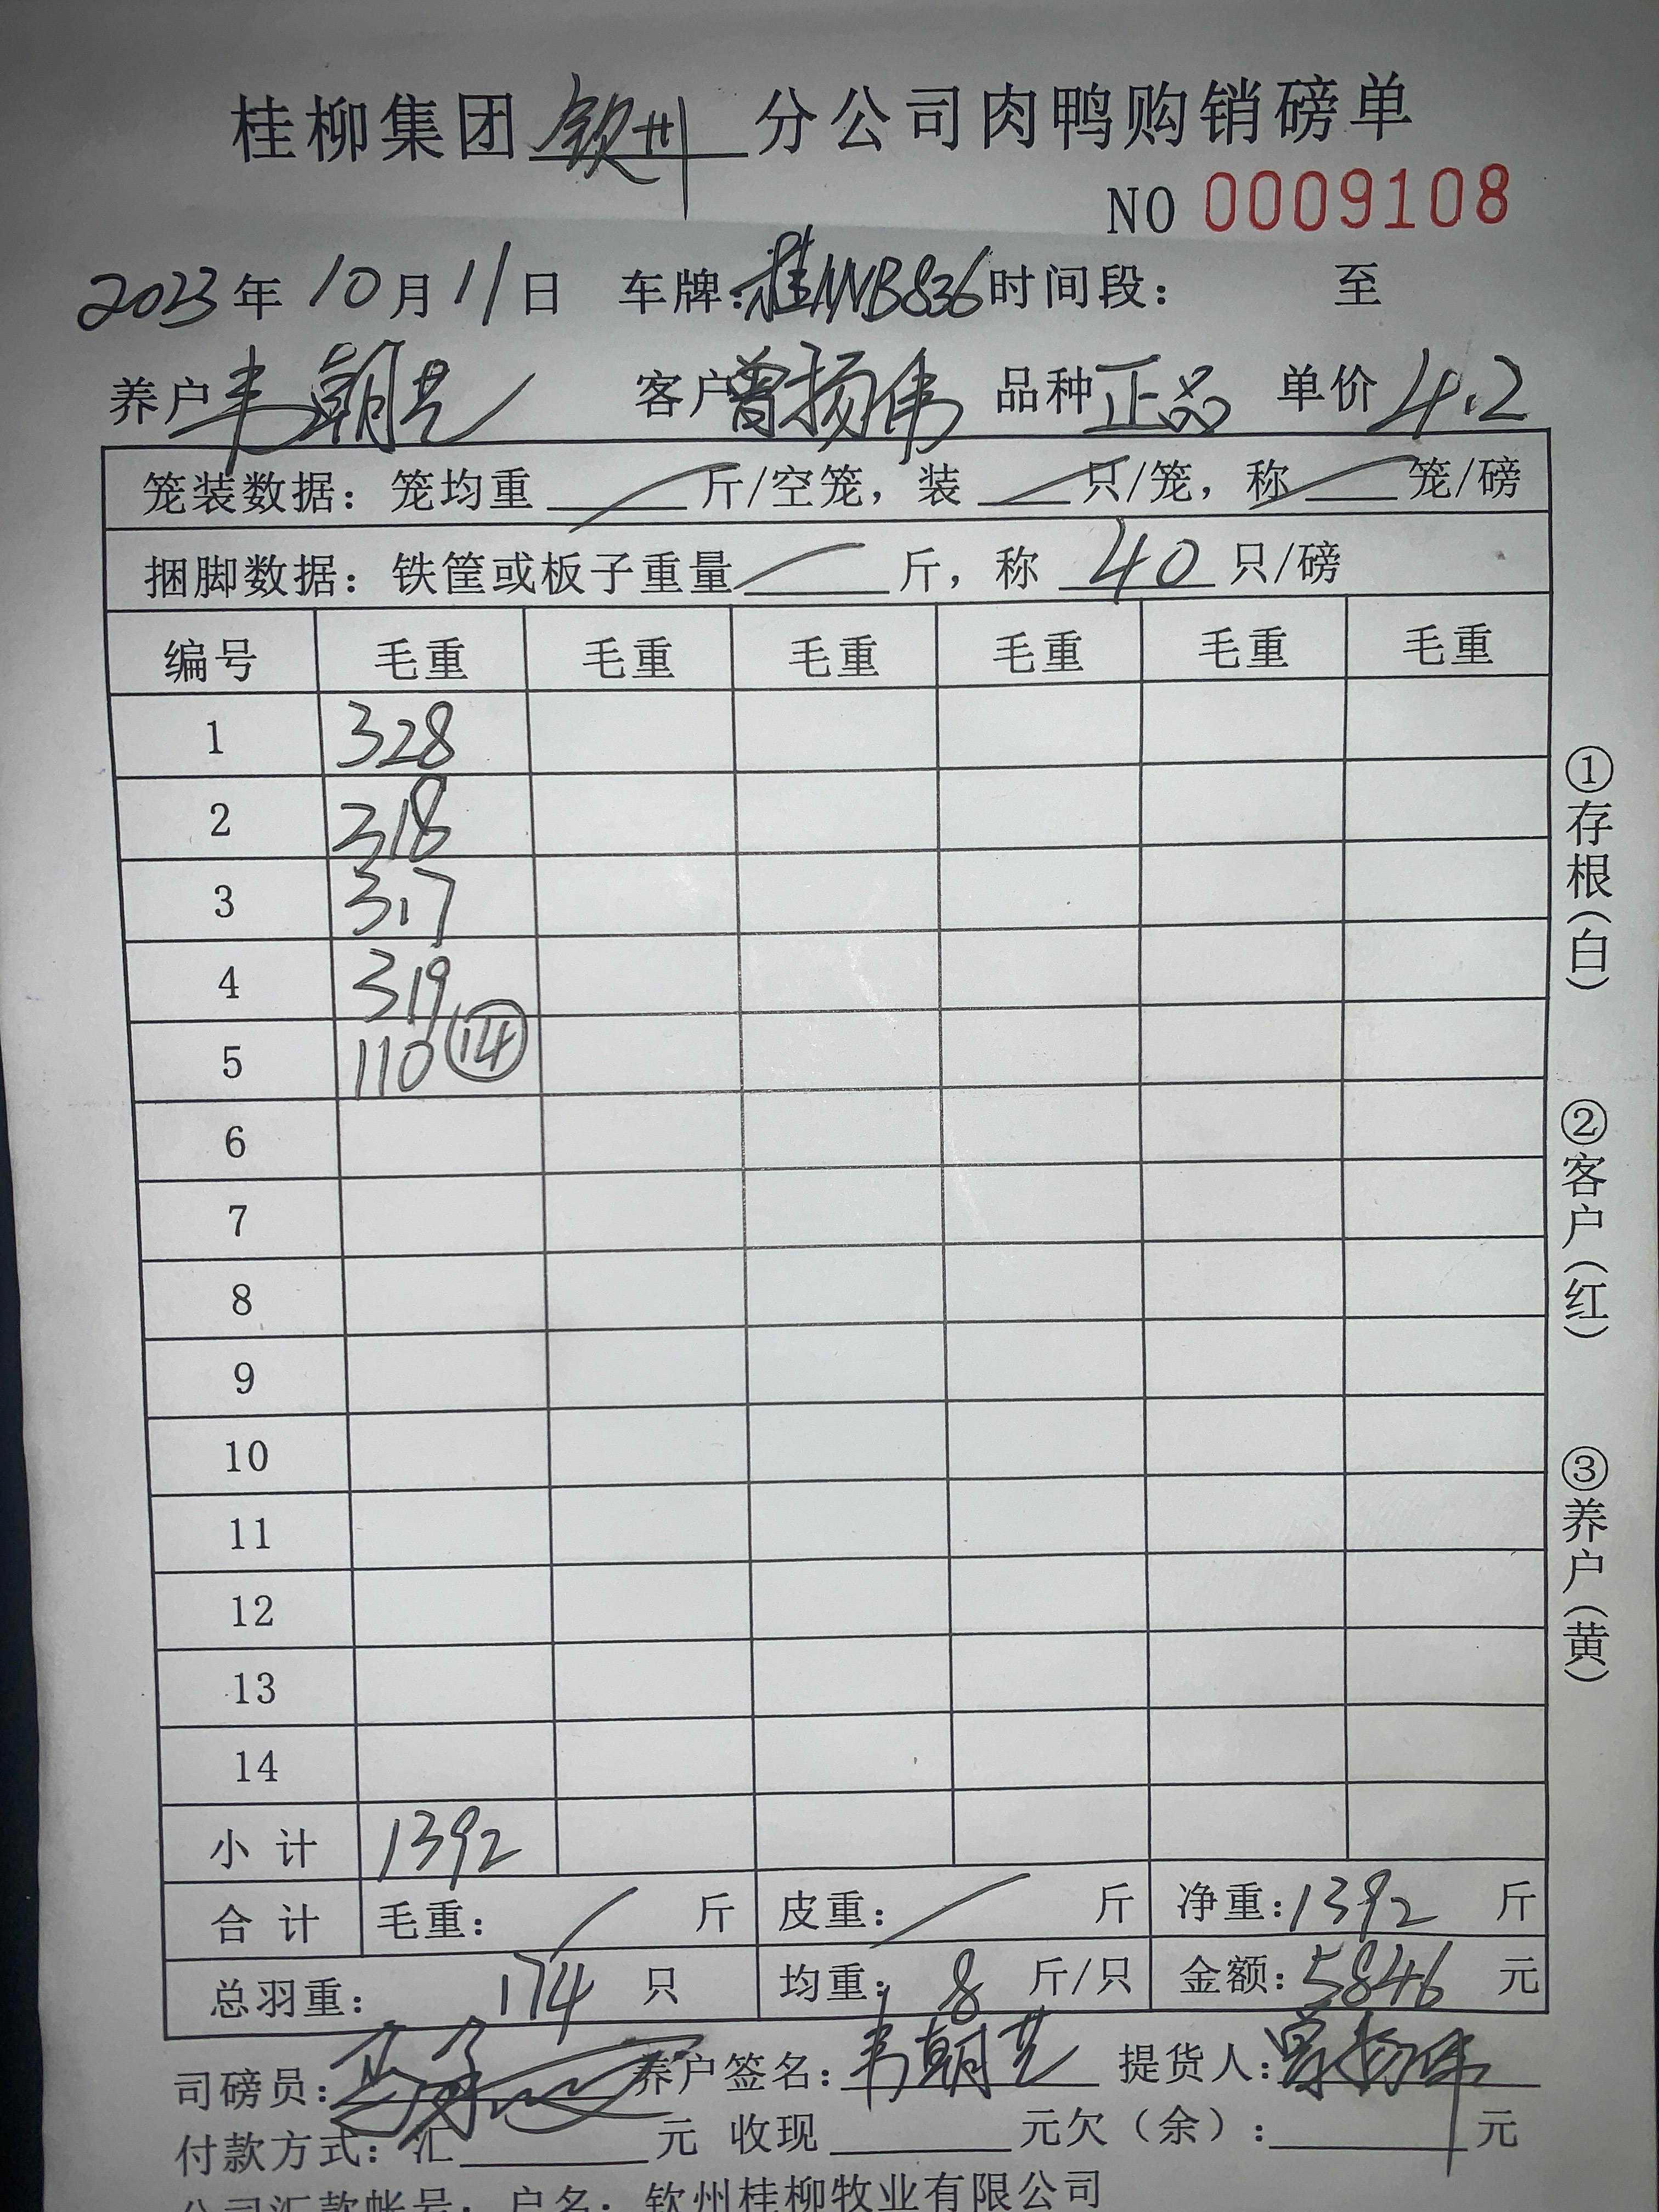 桂柳集团钦州分公司肉鸭购销磅单
NO 0009108
2023年10月11日 车牌:桂NNB836 时间段: 至
养户韦朝芝 客户曾扬伟 品种正品 单价4.2
笼装数据: 笼均重 斤/空笼, 装 只/笼, 称 笼/磅
捆脚数据: 铁筐或板子重量 斤, 称 40 只/磅
编号 毛重 毛重 毛重 毛重 毛重 毛重
1 328
2 318
3 317
4 319
5 110 ⑭
6
7
8
9
10
11
12
13
14
小计 1392
合计 毛重: 斤 皮重: 斤 净重:1392 斤
总羽重: 174 只 均重: 8 斤/只 金额:5846 元
司磅员: 养户签名:韦朝芝 提货人:曾扬伟
付款方式: 汇 元 收现 元欠(余): 元
公司汇款帐号: 户名: 钦州桂柳牧业有限公司
①存根(白)
②客户(红)
③养户(黄)